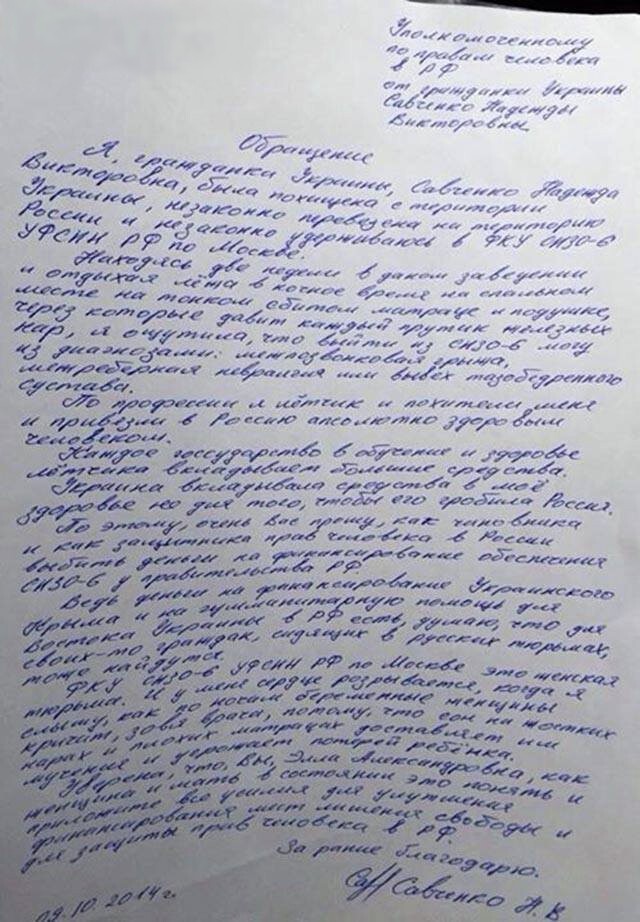 Уполномоченному
по правам человека
в РФ
от гражданки Украины
Савченко Надежды
Викторовны
Обращение
Я, гражданка Украины, Савченко Надежда
Викторовна, была похищена с територии
Украины, незаконно перевезена на територию
России и незаконно удерживаюсь в ФКУ СИЗО-6
УФСИН РФ по Москве.
Находясь две недели в даном заведении
и отдыхая лёжа в ночное время на спальном
месте на тонком сбитом матраце и подушке,
через которые давит каждый прутик железных
нар, я ощутила, что выйти из СИЗО-6 могу
из диагнозами: межпозвонковая грыжа,
межреберная невралгия или вывех тазобедренного
сустава.
По профессии я лётчик и похители меня
и привезли в Россию апсолютно здоровым
человеком.
Каждое госсударство в обучение и здоровье
лётчика вкладывает большие средства.
Украина вкладывала средства в моё
здоровье не для того, чтобы его гробила Россия.
По этому, очень Вас прошу, как чиновника
и как защитника прав человека в России
выбить деньги на финансирование обеспечения
СИЗО-6 у правительства РФ.
Ведь деньги на финансирование Украинского
Крыма и на гумманитарную помощь для
Востока Украины в РФ есть, думаю, что для
своих-то граждан, сидящих в русских тюрьмах,
тоже найдутся.
ФКУ СИЗО-6 УФСИН РФ по Москве это женская
тюрьма. И у меня сердце розрывается, когда я
слышу, как по ночам беременные женщины
кричат, зовя врача, потому, что сон на жостких
нарах и плохих матрацах доставляет им
мучения и угрожает потерей ребёнка.
Уверена, что, Вы, Элла Александровна, как
женщина и мать в состоянии это понять и
приложите все усилия для улутшения
финансирования мест лишения свободы и
для защиты прав человека в РФ.
За ранее благодарю.
09.10.2014 г. Савченко Н. В.